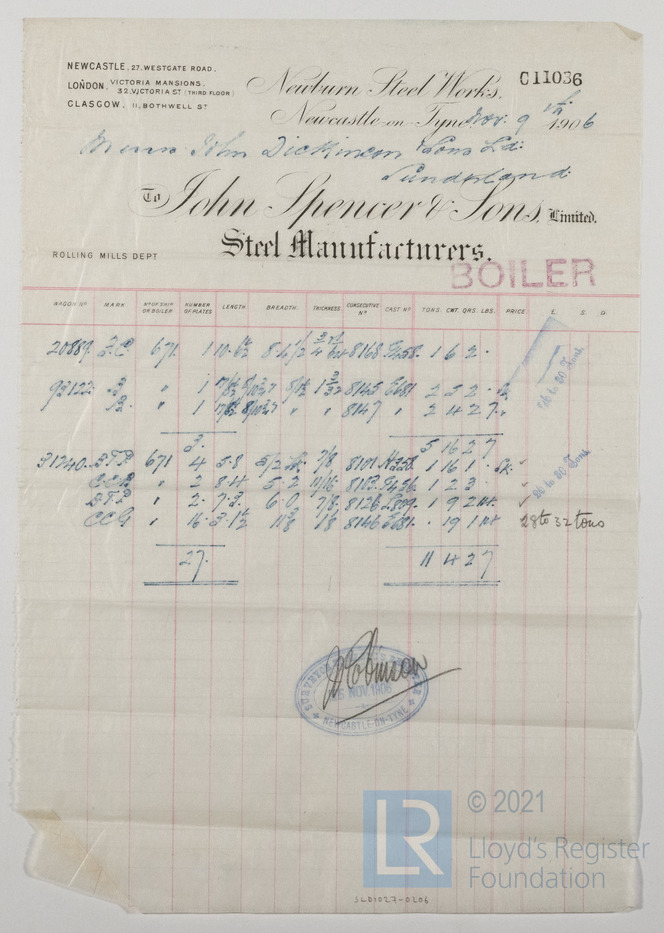 NEWCASTLE, 27, WESTGATE ROAD,
LONDON, VICTORIA MANSIONS, 32, VICTORIA ST (THIRD FLOOR)
GLASGOW, 11, BOTHWELL ST
C11036
Newburn Steel Works,
Newcastle on Tyne, Nov. 9th 1906
Messrs John Dickinson & Sons Ld.
Sunderland
To John Spencer & Sons, Limited.
Steel Manufacturers.
ROLLING MILLS DEPT
BOILER
WAGON No MARK No OF SHIP OR BOILER NUMBER OF PLATES LENGTH BREADTH THICKNESS CONSECUTIVE No CAST No TONS. CWT. QRS. LBS. PRICE £ S. D.
20889 671 1 8168 1 6 2
26 to 30 Tons
93122 " 1 8145 E681 2 5 2
" 1 " " 8147 " 2 4 2 7
3. 5 16 2 7
31240 BTP 671 4 5.8 7/8 8101 1 16 1
" 2 8.4 5.2 11/16 1 2 3
26 to 30 Tons
BTP " 2. 7.3 6.0 7/8 8126 1 9 2 14
CCG " 16. 3.1½ 8146 E681 19 1 14 28 to 32 tons
27. 11 4 2 7
J Robinson
NOV. 1906
NEWCASTLE-ON-TYNE
LR
© 2021
Lloyd's Register
Foundation
SLD1027-0206